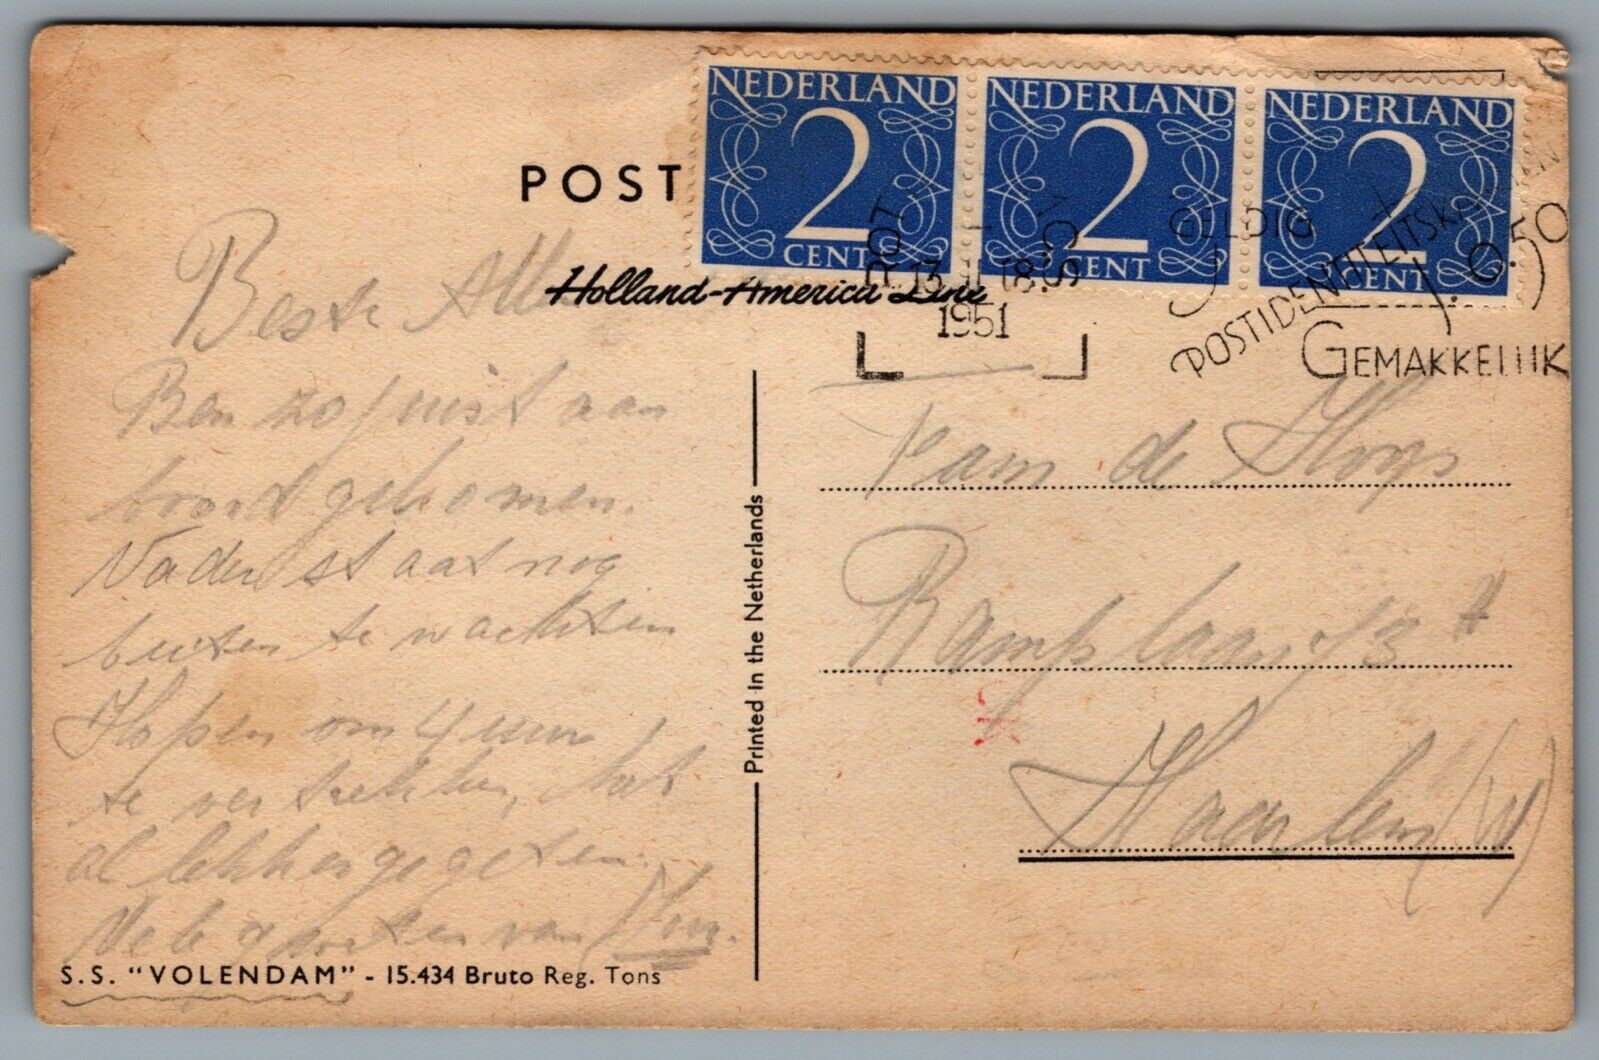 NEDERLAND NEDERLAND NEDERLAND
2 2 2
CENT CENT CENT
POST
Holland-America Line
ROT
13
1951
GELDIG
POSTIDENTITEITSKA
0.50
GEMAKKELIJK
Beste All
Ben zo juist aan
boord gekomen.
Vader staat nog
buiten te wachten
Hopen om 4 uur
te vertrekken, heb
al lekker gegeten.
Vele groeten van Wim.
S.S. "VOLENDAM" - 15.434 Bruto Reg. Tons
Printed in the Netherlands
Fam de Hoop
Ramplaan 73
Haarlem (W)